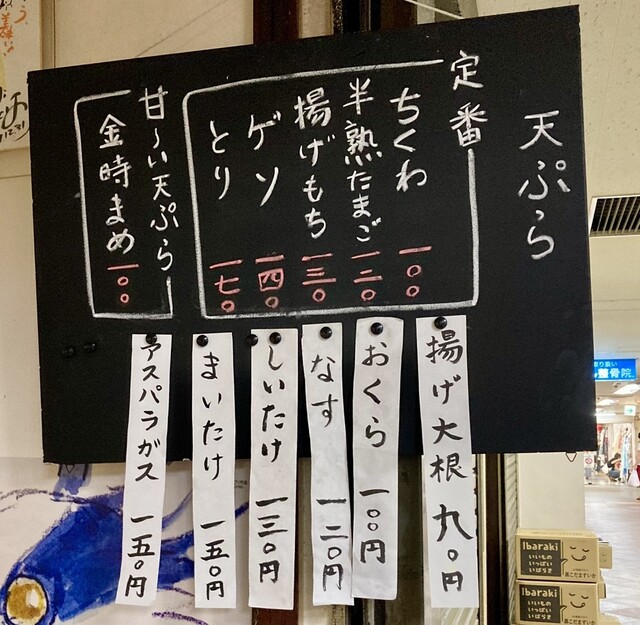 天ぷら
定番
ちくわ 一〇〇
半熟たまご 一二〇
揚げもち 一三〇
ゲソ 一四〇
とり 一七〇
甘〜い天ぷら
金時まめ 一〇〇
揚げ大根 九〇円
おくら 一〇〇円
なす 一二〇円
しいたけ 一三〇円
まいたけ 一五〇円
アスパラガス 一五〇円
整骨院
Ibaraki
いいもの
いっぱい
いばらき
Ibaraki
いいもの
いっぱい
いばらき